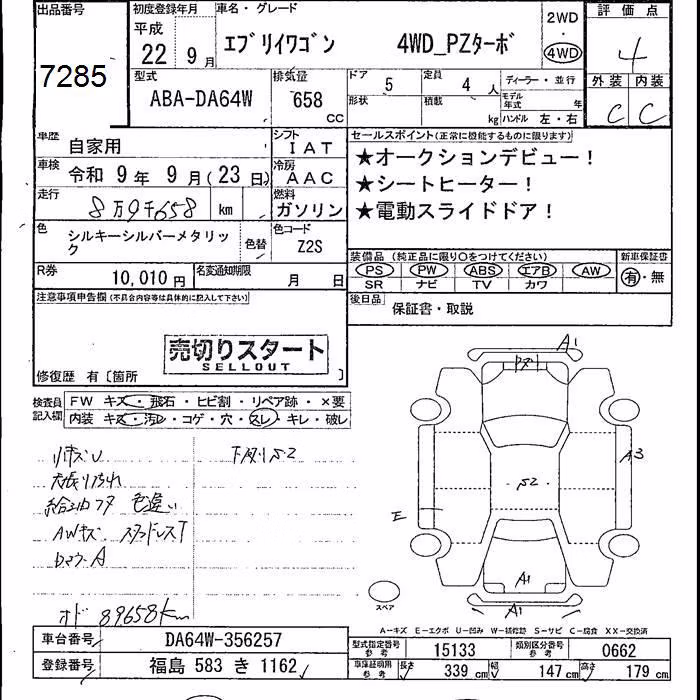 出品番号
7285
初度登録年月
平成
22 9 月
車名・グレード
エブリイワゴン 4WD_PZターボ
2WD
・
4WD
評価点
4
型式
ABA-DA64W
排気量
658
CC
ドア 5
定員 4 人
ディーラー・並行
形状
積載 kg
モデル年式 年
ハンドル 左・右
外装 内装
C C
車歴
自家用
シフト
IAT
車検
令和 9 年 9 月(23 日)
冷房
AAC
走行
8万9千658 km
燃料
ガソリン
色
シルキーシルバーメタリック
色替
色コード
Z2S
R券
10,010 円
名変通知期限
月 日
セールスポイント(正常に機能するものに限ります)
★オークションデビュー!
★シートヒーター!
★電動スライドドア!
装備品 (純正品に限り○をつけてください)
PS PW ABS エアB AW
SR ナビ TV カワ
新車保証書
有・無
後日品
保証書・取説
注意事項申告欄(不具合内容等は具体的に記入して下さい)
売切りスタート
SELLOUT
修復歴 有〔箇所 〕
検査員記入欄
FW キズ・飛石・ヒビ割・リペア跡・×要
内装 キズ・汚レ・コゲ・穴・スレ・キレ・破レ
下廻りS2
天張り汚れ
給油口フタ 色違い
AWキズ スタッドレスT
オド 89658km
A1
A3
S2
E
A1
A1
スペア
A―キズ E―エクボ U―凹み W―補修跡 S―サビ C―腐食 XX―交換済
車台番号
DA64W-356257
登録番号
福島 583 き 1162
型式指定番号
参考
15133
類別区分番号
参考
0662
車庫証明用
参考
長さ 339 cm
幅 147 cm
高さ 179 cm